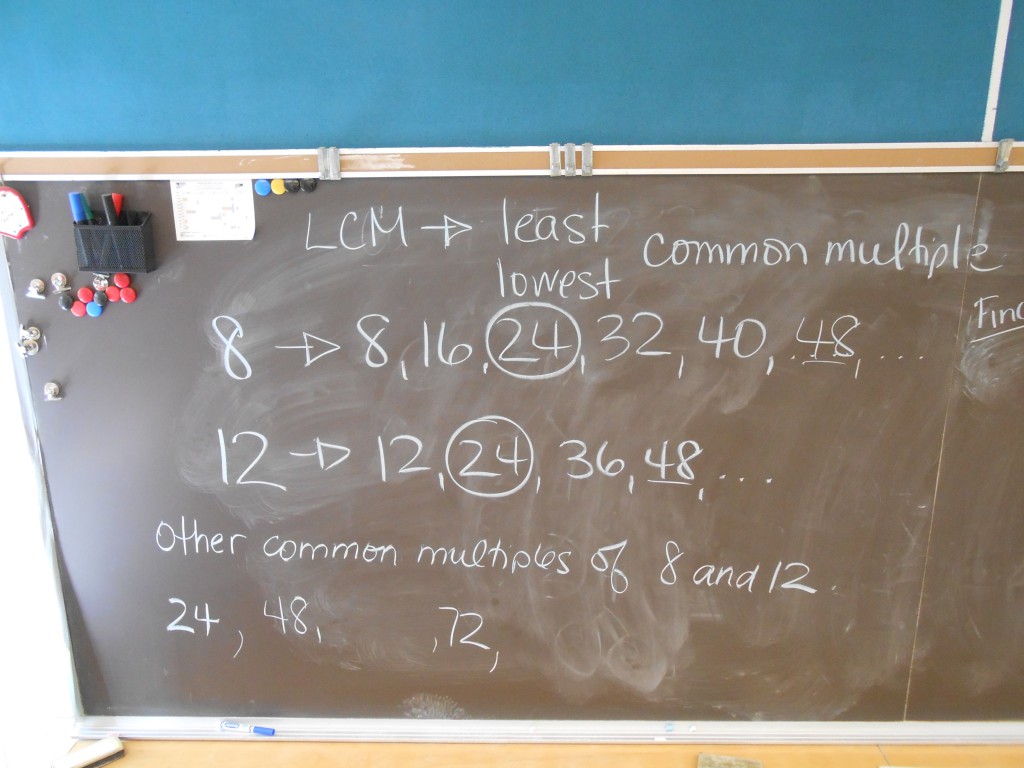 LCM → least
lowest
common multiple
8 → 8, 16, 24, 32, 40, 48, ....
12 → 12, 24, 36, 48, ....
Other common multiples of 8 and 12.
24, 48, , 72,